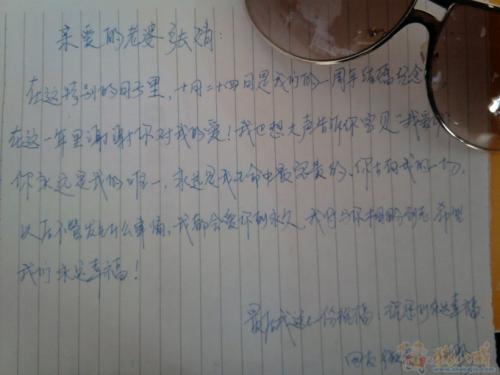 亲爱的老婆张娟:
在这特别的日子里,十月二十四日是我们的一周年结婚纪念
在这一年里谢谢你对我的爱!我也想大声告诉你宝贝"我爱你
你永远是我的唯一,永远是我生命中最宝贵的、你是我的一切,
以后不管发生什么事情,我都会爱你到永久,我会与你相 希望
我们永远幸福!
最后我送上一份祝福,祝愿我们永远幸福.